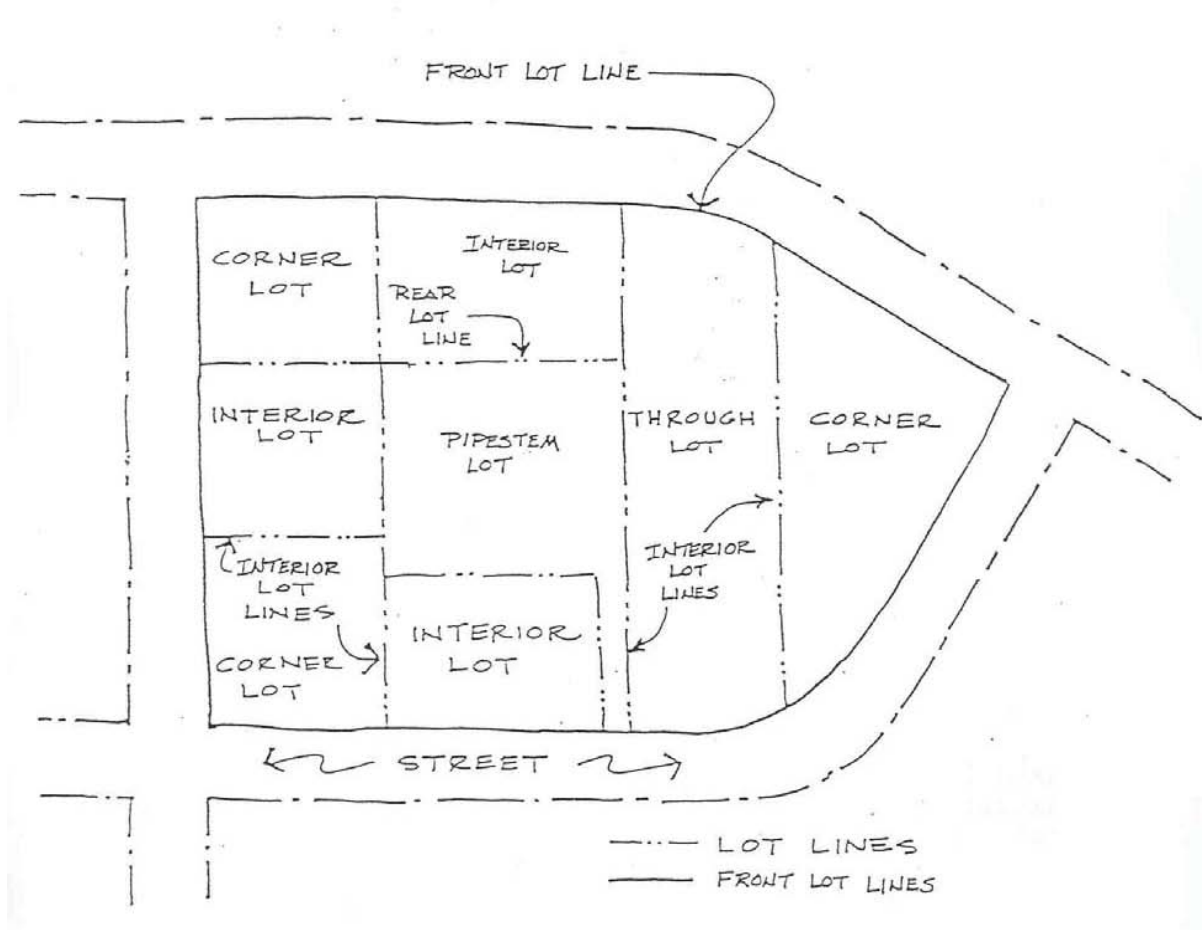 FRONT LOT LINE
CORNER
LOT
INTERIOR
LOT
REAR
LOT
LINE
INTERIOR
LOT
PIPESTEM
LOT
THROUGH
LOT
CORNER
LOT
INTERIOR
LOT
LINES
CORNER
LOT
INTERIOR
LOT
INTERIOR
LOT
LINES
STREET
LOT LINES
FRONT LOT LINES